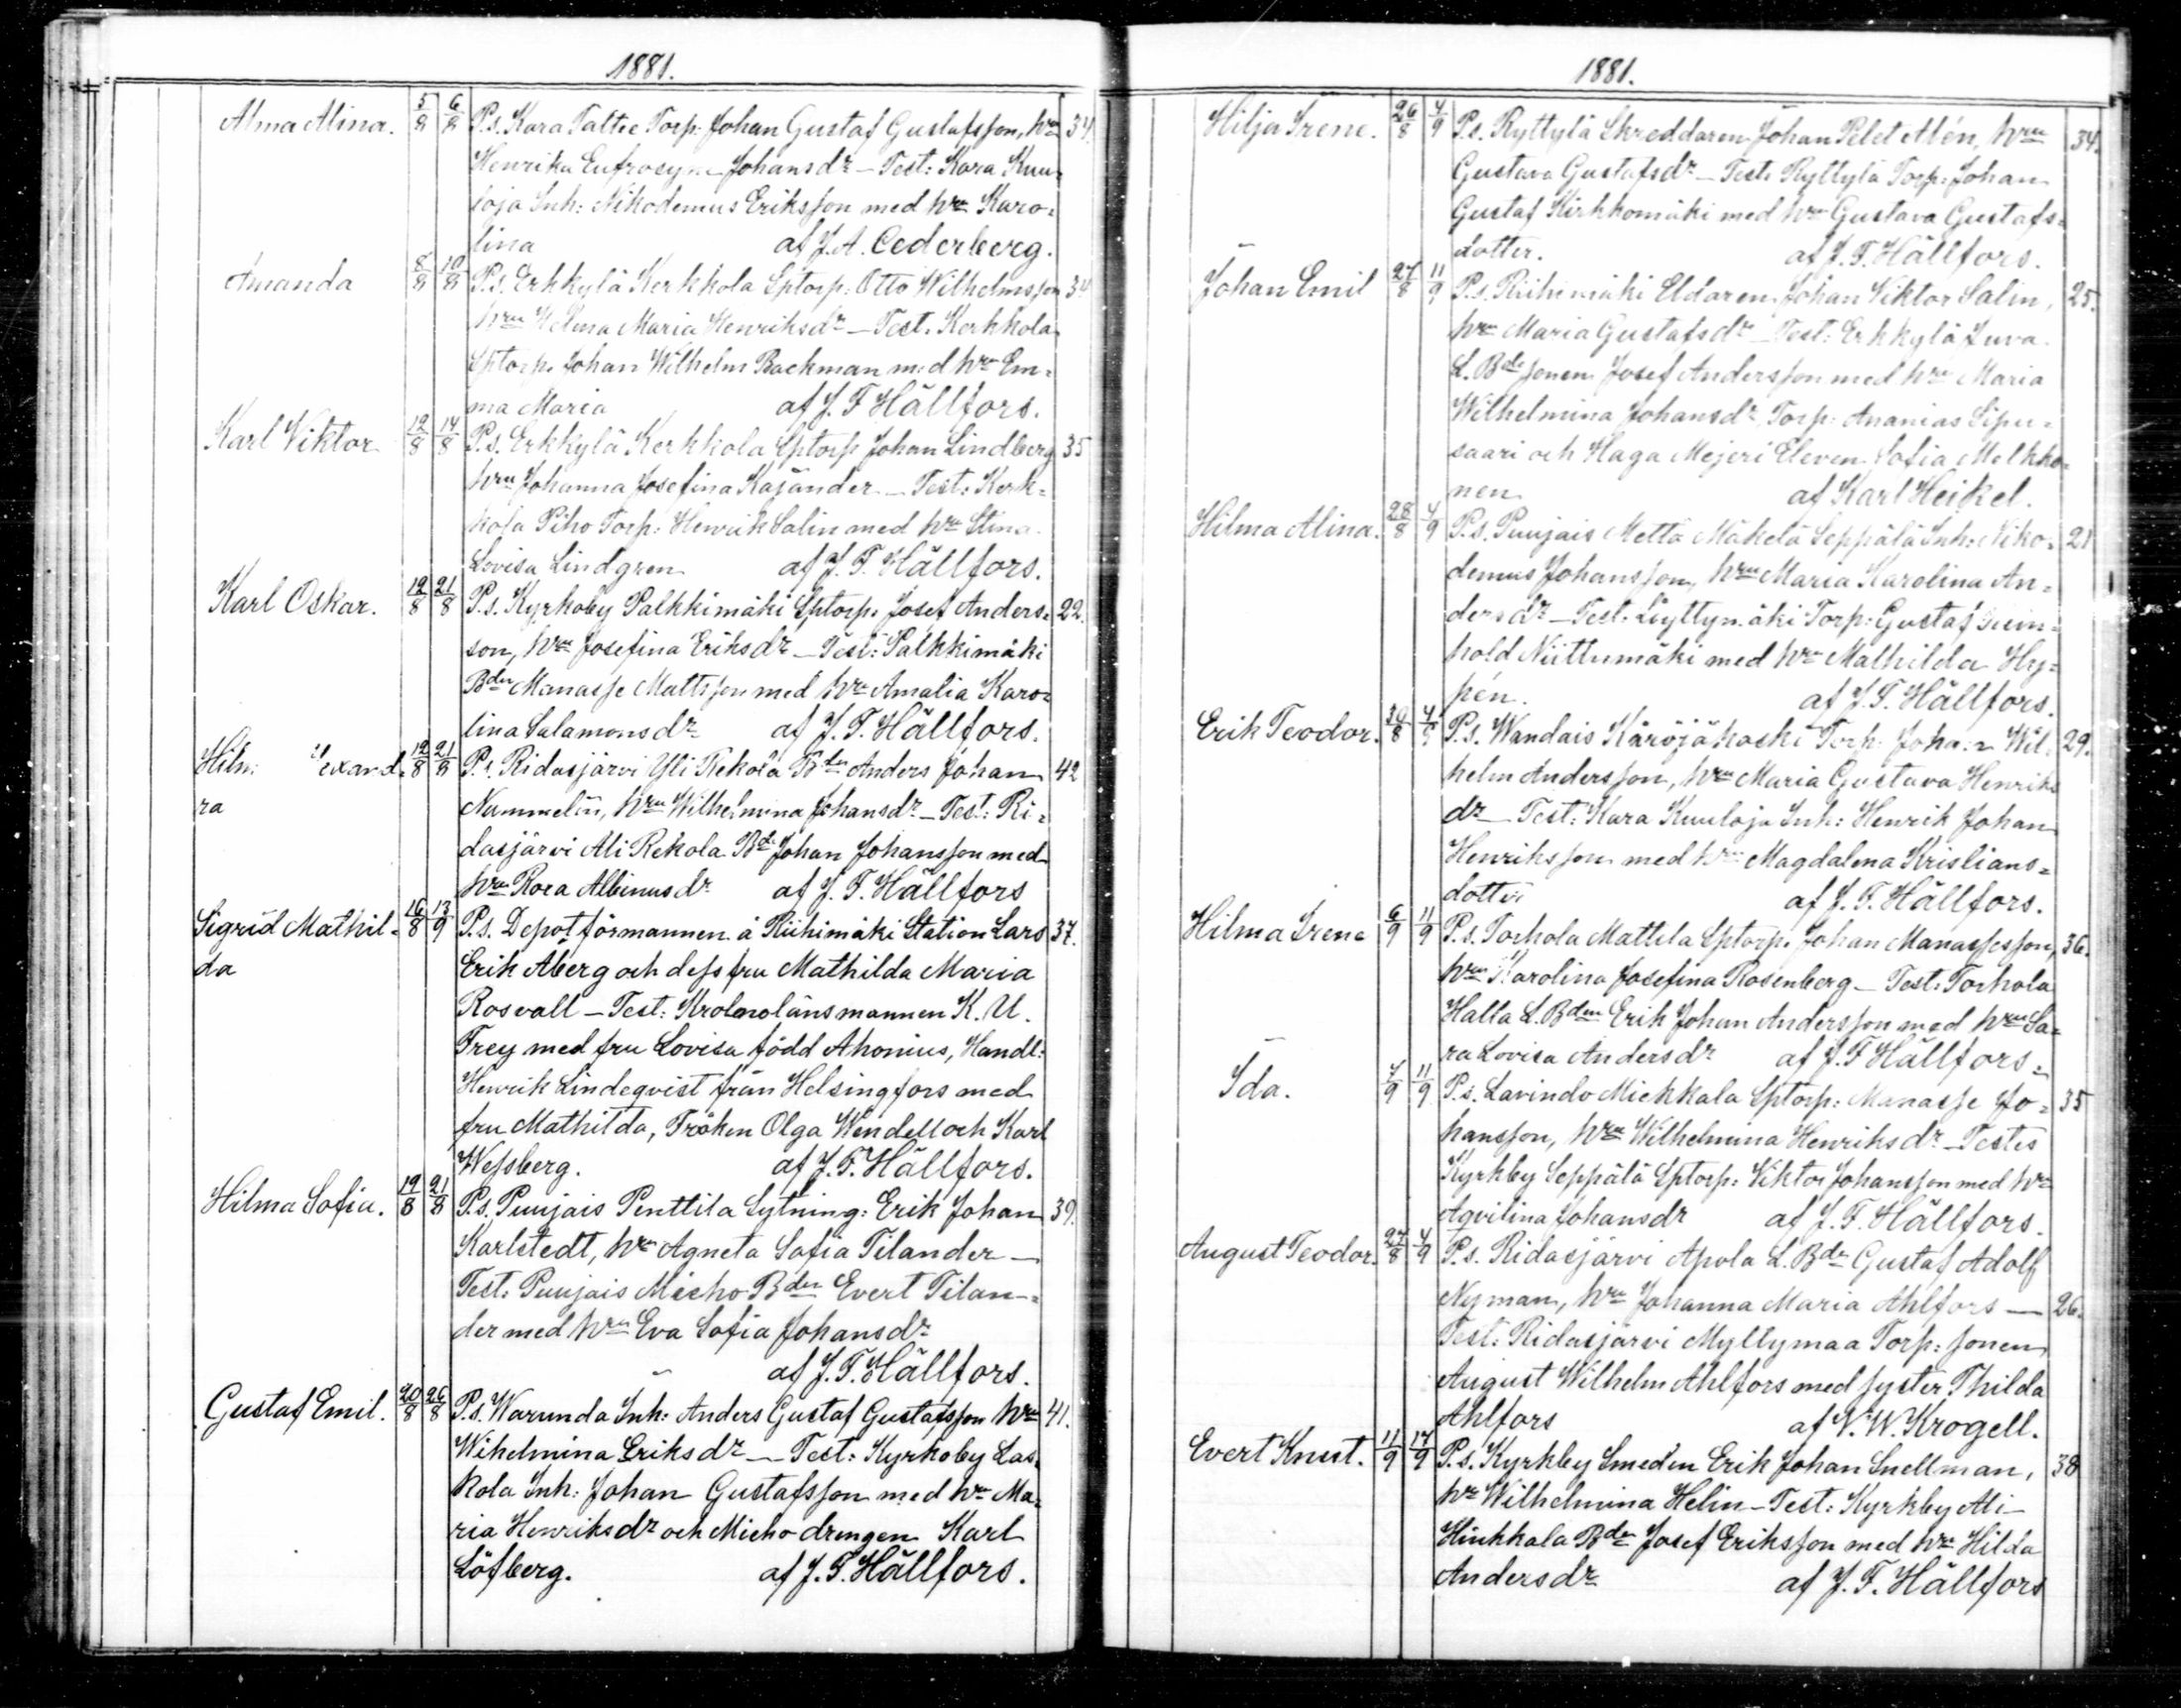 1881.
Alma Alina. 5/8 6/8 P.s. Kara Tattee Torp: Johan Gustaf Gustafsson, hru 34.
Henrika Eufrosyne Johansdr – Test: Kara Kuu-
loja Inh: Nikodemus Eriksson med hru Karo-
lina af J. A. Cederberg.
Amanda 8/8 10/8 P.s. Erkkylä Kerkkola Sptorp: Otto Wilhelmsson 34
hru Helena Maria Henriksdr – Test. Kerkkola
Sptorp. Johan Wilhelm Backman med hru Em-
ma Maria af J. F. Hällfors.
Karl Viktor 12/8 14/8 P.s. Erkkylä Kerkkola Sptorp Johan Lindberg 35
hru Johanna Josefina Kajander – Test: Kerk-
kola Piho Torp: Henrik Salin med hru Stina
Lovisa Lindgren af J. F. Hällfors.
Karl Oskar. 12/8 21/8 P.s. Kyrkoby Palkkimäki Sptorp. Josef Anders- 22.
son, hru Josefina Eriksdr – Test: Palkkimäki
Bdn Manasse Mattsson med hru Amalia Karo-
lina Salamonsdr af J. F. Hällfors.
12/8 21/8 P.s. Ridasjärvi Yli Rekola Bdn Anders Johan 42
ra Nummelin, hru Wilhelmina Johansdr – Test: Ri-
dasjärvi Ali Rekola Bdn Johan Johansson med
hru Rosa Albinusdr af J. F. Hällfors
Sigrid Mathil- 16/8 13/9 P.s. Depotförmannen å Riihimäki Station Lars 37.
da Erik Åberg och dess fru Mathilda Maria
Rosvall – Test: Kronolänsmannen K. U.
Frey med fru Lovisa född Ahonius, Handl:
Henrik Lindeqvist från Helsingfors med
fru Mathilda, Fröken Olga Wendell och Karl
Wessberg. af J. F. Hällfors.
Hilma Sofia. 19/8 21/8 P.s. Puujais Penttila Sytning: Erik Johan 39.
Karlstedt, hru Agneta Sofia Tilander –
Test: Puujais Micho Bdn Evert Tilan-
der med hru Eva Sofia Johansdr
af J. F. Hällfors.
Gustaf Emil. 20/8 26/8 P.s. Warunda Inh: Anders Gustaf Gustafsson hru 41.
Wihelmina Eriksdr – Test: Kyrkoby Las-
kola Inh: Johan Gustafsson med hru Ma-
ria Henriksdr och Micho drengen Karl
Löfberg. af J. F. Hällfors.
1881.
Hilja Irene. 26/8 4/9 P.s. Ryttylä Skreddaren Johan Alén, hru 34.
Gustava Gustafsdr – Test: Ryttylä Torp: Johan
Gustaf Kirkkomäki med hru Gustava Gustafs-
dotter. af J. F. Hällfors.
Johan Emil 27/8 11/9 P.s. Riihimäki Eldaren Johan Viktor Salin, 25.
hru Maria Gustafsdr – Test: Erkkylä Juva
L. Bdesonen Josef Andersson med hru Maria
Wilhelmina Johansdr, Torp: Ananias Sipu-
saari och Haga Mejeri Eleven Sofia Melkko-
nen af Karl Heikel.
Hilma Alina. 28/8 4/9 P.s. Puujais Metta Mäkelä Seppälä Inh: Niko- 21
demus Johansson, hru Maria Karolina An-
dersdr – Test: Gustaf Rein-
hold Niittumäki med hru Mathilda Hy-
pén. af J. F. Hällfors.
Erik Teodor. 30/8 4/9 P.s. Wandais Käröjäkoski Torp: Johan Wil- 29.
helm Andersson, hru Maria Gustava Henriks
dr – Test: Kara Kuuloja Inh: Henrik Johan
Henriksson med hru Magdalena Kristians-
dotter af J. F. Hällfors.
Hilma Irene 6/9 11/9 P.s. Torhola Mattila Sptorp. Johan Manassesson, 36.
hru Karolina Josefina Rosenberg – Test: Torhola
Halla L. Bdn Erik Johan Andersson med hru Sa-
ra Lovisa Andersdr af J. F. Hällfors.
Ida. 7/9 11/9 P.s. Lavindo Mickkala Sptorp: Manasse Jo- 35
hansson, hru Wilhelmina Henriksdr – Testes
Kyrkby Seppälä Sptorp: Viktor Johansson med hru
Aqvilina Johansdr af J. F. Hällfors.
August Teodor. 27/8 4/9 P.s. Ridasjärvi Apola L. Bdn Gustaf Adolf
Nyman, hru Johanna Maria Ahlfors – 26.
Test: Ridasjärvi Myllymaa Torp: sonen
August Wilhelm Ahlfors med syster Thilda
Ahlfors af N. W. Krogell.
Evert Knut. 11/9 17/9 P.s. Kyrkby Smeden Erik Johan Snellman, 38
hru Wilhelmina Helin – Test: Kyrkby Ali-
Hinkkala Bdn Josef Eriksson med hru Hilda
Andersdr af J. F. Hällfors